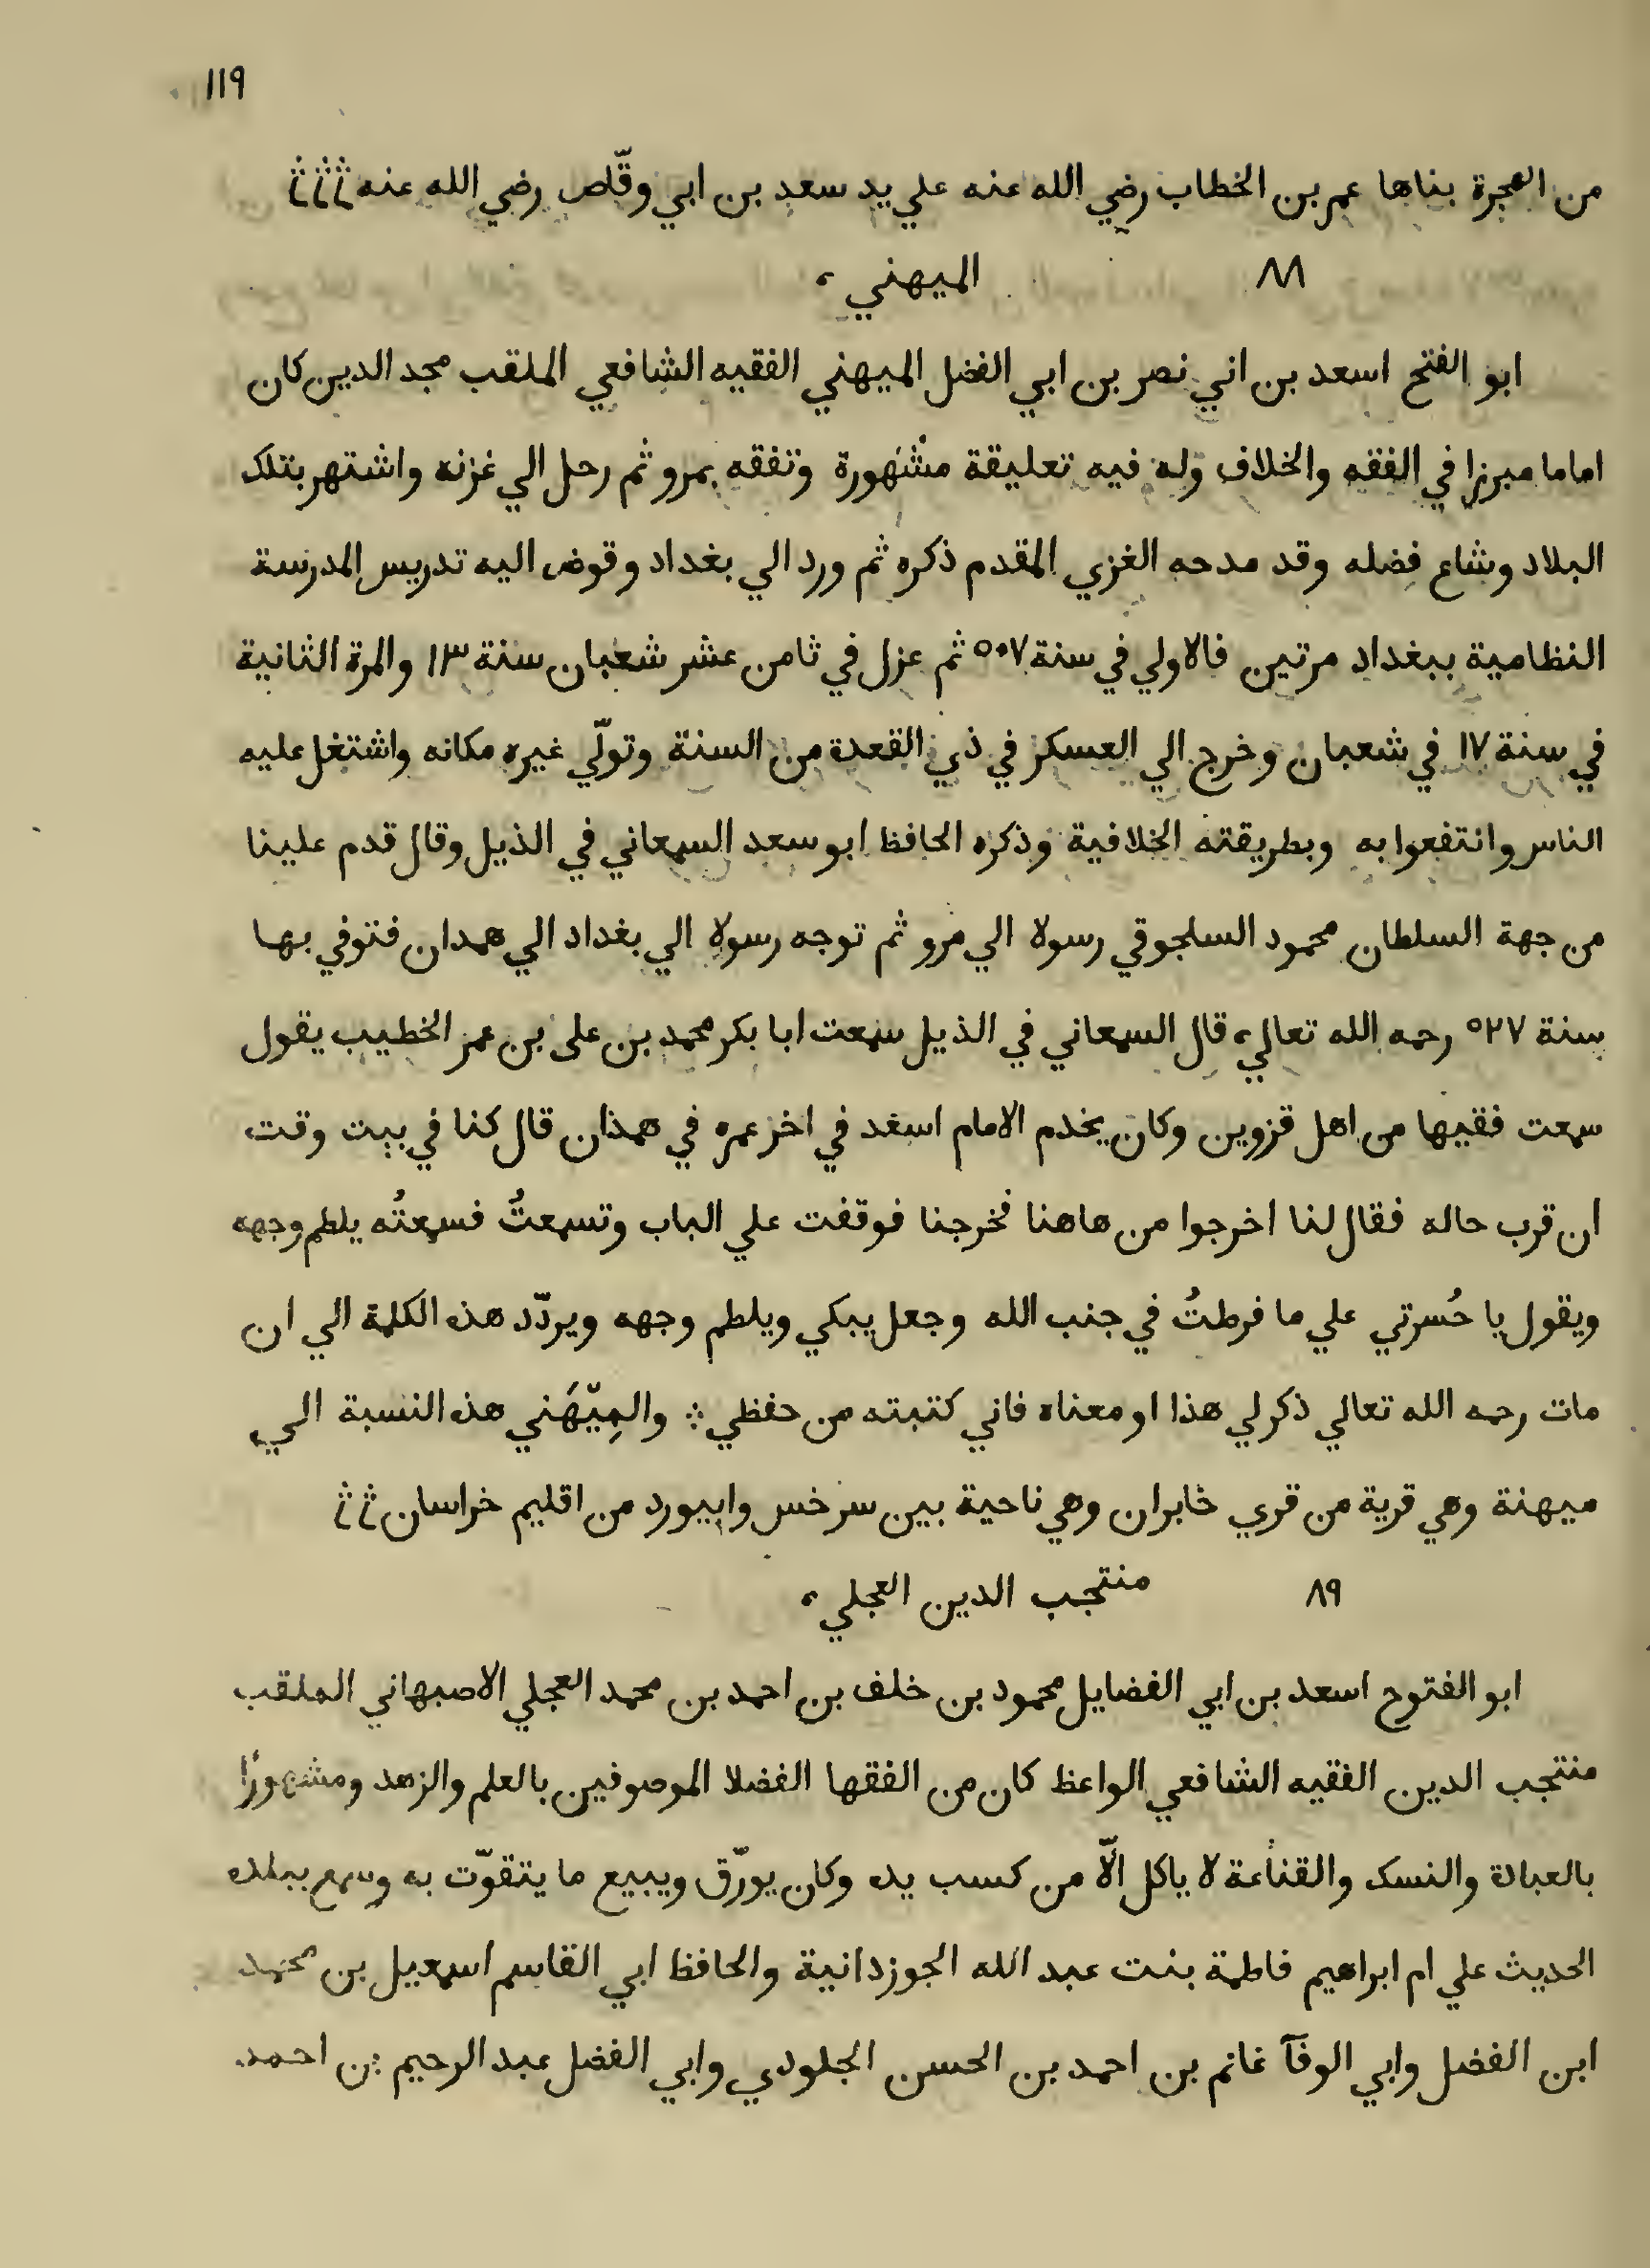 ١١٩
من الهجرة بناها عمر بن الخطاب رضي الله عنه علي يد سعد بن ابي وقّاص رضي الله عنه
٨٨ الميهني،
ابو الفتح اسعد بن اني نصر بن ابي الفضل الميهني الفقيه الشافعي الملقب مجد الدين كان
اماما مبرزا في الفقه والخلاف وله فيه تعليقة مشهورة وتفقه بمرو ثم رحل الي غزنه واشتهر بتلك
البلاد وشاع فضله وقد مدحه الغزي المقدم ذكره ثم ورد الي بغداد وقوض اليه تدريس المدرسة
النظامية ببغداد مرتين فالاولي في سنة ٥٠٧ ثم عزل في ثامن عشر شعبان سنة ١٣ والمرة الثانية
في سنة ١٧ في شعبان وخرج الي العسكر في ذي القعدة من السنة وتولّي غيره مكانه واشتغل عليه
الناس وانتفعوا به وبطريقته الخلافية وذكره الحافظ ابو سعد السمعاني في الذيل وقال قدم علينا
من جهة السلطان محمود السلجوقي رسولا الي مرو ثم توجه رسولا الي بغداد الي همدان فتوفي بها
سنة ٥٢٧ رحمه الله تعالي، قال السمعاني في الذيل سمعت ابا بكر محمد بن على بن عمر الخطيب يقول
سمعت فقيها من اهل قزوين وكان يخدم الامام اسعد في اخر عمره في همذان قال كنا في بيت وقت
ان قرب حاله فقال لنا اخرجوا من هاهنا فخرجنا فوقفت علي الباب وتسمعتُ فسمعتُه يلطم وجهه
ويقول يا حُسرتي علي ما فرطتُ في جنب الله وجعل يبكي ويلطم وجهه ويردّد هذه الكلمة الي ان
مات رحمه الله تعالي ذكر لي هذا او معناه فاني كتبته من حفظي ؞ والمِيّهَني هذه النسبة الي
ميهنة وهي قرية من قري خابران وهي ناحية بين سرخس وابيورد من اقليم خراسان
٨٩ منتجب الدين العجلي،
ابو الفتوح اسعد بن ابي الفضايل محمود بن خلف بن احمد بن محمد العجلي الاصبهاني الملقب
منتجب الدين الفقيه الشافعي الواعظ كان من الفقها الفضلا الموصوفين بالعلم والزهد ومشهورًا
بالعبادة والنسك والقناعة لا ياكل الّا من كسب يده وكان يورّق ويبيع ما يتقوّت به وسمع ببلده
الحديث علي ام ابراهيم فاطمة بنت عبد الله الجوزدانية والحافظ ابي القاسم اسمعيل بن محمد
ابن الفضل وابي الوفآ غانم بن احمد بن الحسن الجلودي وابي الفضل عبد الرحيم بن احمد